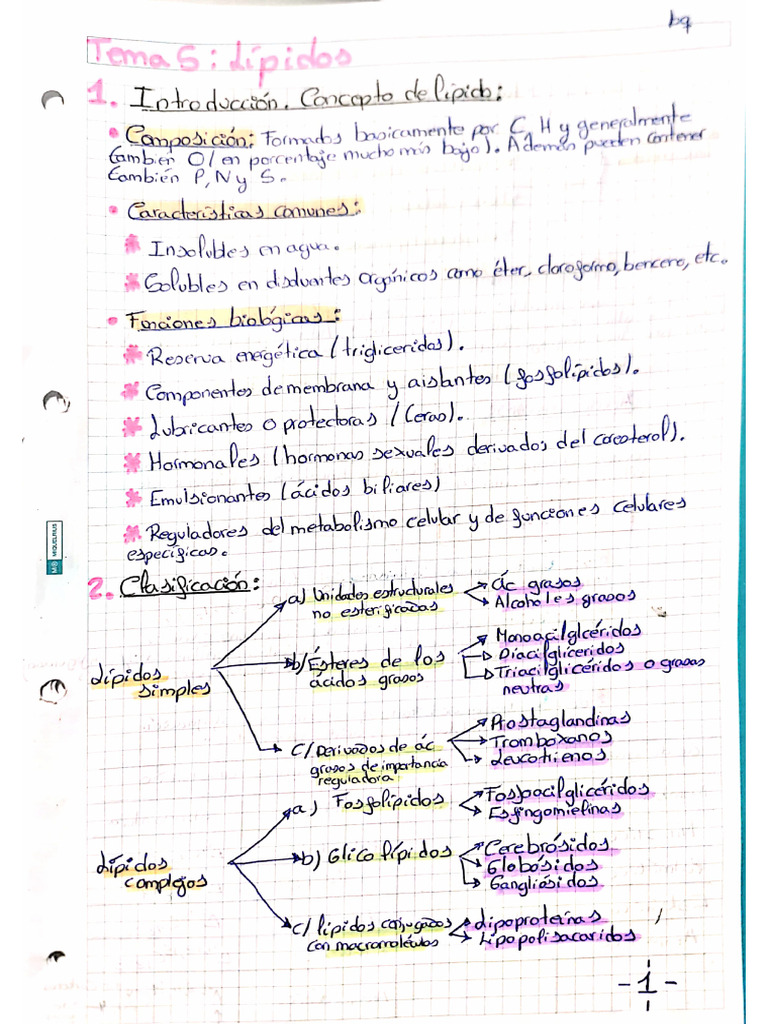 bq
Tema 5: Lípidos
1. Introducción. Concepto de lípido:
• Composición: Formados basicamente por C, H y generalmente
también O (en porcentaje mucho más bajo). Además pueden contener
también P, N y S.
• Características comunes:
* Insolubles en agua.
* Solubles en disolventes orgánicos como éter, cloroformo, benceno, etc.
• Funciones biológicas:
* Reserva energética (trigliceridos).
* Componentes de membrana y aislantes (fosfolípidos).
* Lubricantes o protectoras (Ceras).
* Hormonales (hormonas sexuales derivados del colesterol).
* Emulsionantes (ácidos biliares)
* Reguladores del metabolismo celular y de funciones celulares
especificas.
MIQUELRIUS
2. Clasificación:
Lípidos simples
a) Unidades estructurales
no esterificadas
Ác grasos
Alcoholes grasos
b) Ésteres de los
ácidos grasos
Monoacilglicéridos
Diacilgliceridos
Triacilglicéridos o grasas
neutras
c) Derivados de ác
grasos de importancia
reguladora
Prostaglandinas
Tromboxanos
Leucotrienos
Lípidos
complejos
a) Fosfolípidos
Fosfoacilglicéridos
Esfingomielinas
b) Glico lípidos
Cerebrósidos
Globósidos
Gangliósidos
c) lípidos conjugados
con macromoléculas
Lipoproteínas
Lipopolisacaridos
-1-